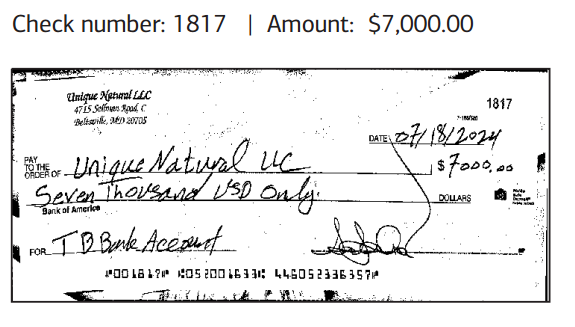 Check number: 1817 | Amount: $7,000.00
Unique Natural LLC
4715 Sellman Road, C
Beltsville, MD 20705
1817
DATE 07/18/2024
PAY TO THE ORDER OF Unique Natural LLC $7000.00
Seven Thousand USD Only DOLLARS
Bank of America
FOR TD Bank Account
⑈001817⑈ ⑆052001633⑆ 446052336357⑈